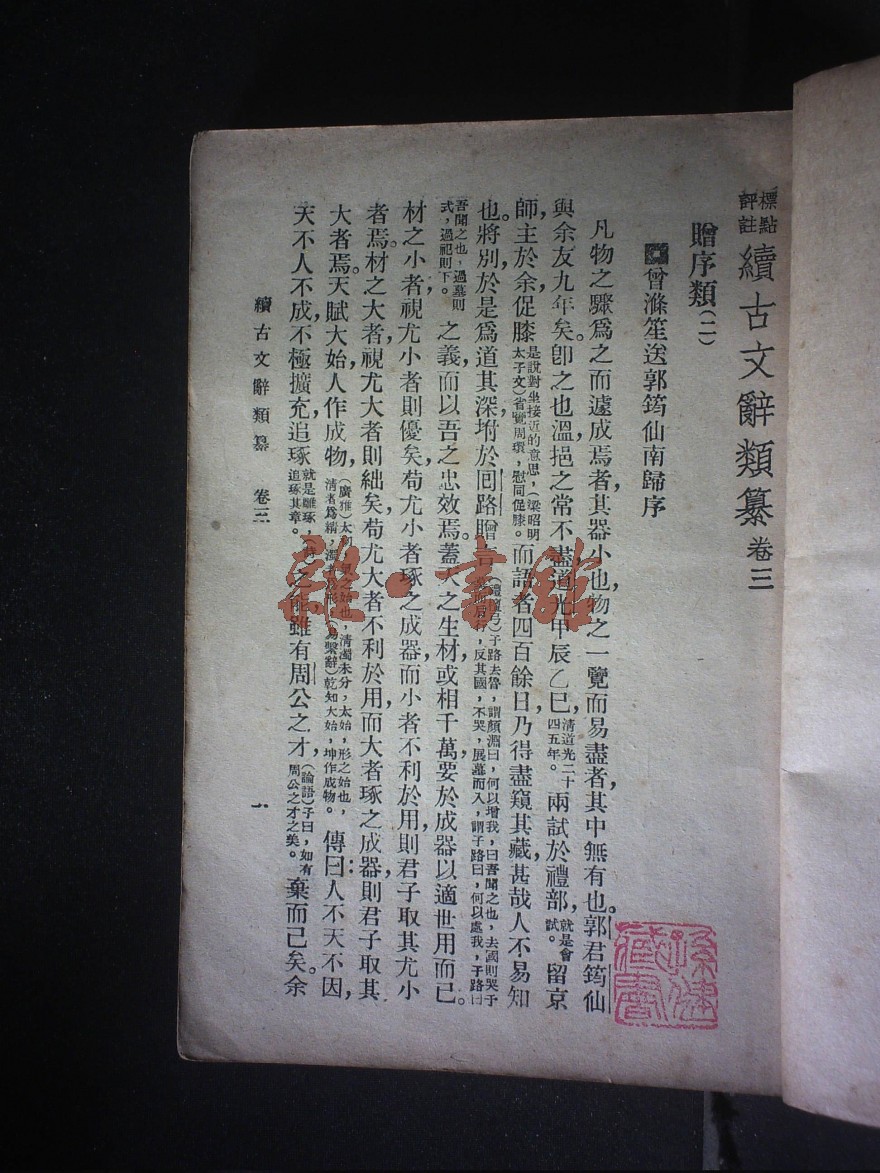 標點評註續古文辭類纂卷三
贈序類(二)
曾滌笙送郭筠仙南歸序
凡物之驟爲之而遽成焉者，其器小也，物之一覽而易盡者，其中無有也。郭君筠仙
與余友九年矣。卽之也溫，挹之常不盡，道光甲辰乙巳，清道光二十四五年。兩試於禮部，就是會試。留京
師，主於余，促膝是說對坐接近的意思，(梁昭明太子文)省覽周環，慰同促膝。而語者四百餘日，乃得盡窺其藏，甚哉人不易知
也。將別，於是爲道其深，坿於回路贈言(禮檀弓)子路去魯，謂顏淵曰，何以增我，曰吾聞之也，去國則哭于墓而后行，反其國，不哭，展墓而入，謂子路曰，何以處我，子路曰
吾聞之也，過墓則式，過祀則下。之義，而以吾之忠效焉。蓋天之生材，或相千萬，要於成器以適世用而已。
材之小者，視尤小者則優矣，苟尤小者琢之成器，而小者不利於用，則君子取其尤小
者焉。材之大者，視尤大者則絀矣，苟尤大者不利於用，而大者琢之成器，則君子取其
大者焉。天賦大始，人作成物，(廣雅)太初，氣之始也，清濁未分，太始，形之始也，清者爲精，濁者爲形，(易繫辭)乾知大始，坤作成物。傳曰：人不天不因，
天不人不成，不極擴充追琢就是雕琢，(詩)追琢其章。之能，雖有周公之才，(論語)子曰，如有周公之才之美。棄而已矣。余
續古文辭類纂 卷三
一
雜·書館
藏書